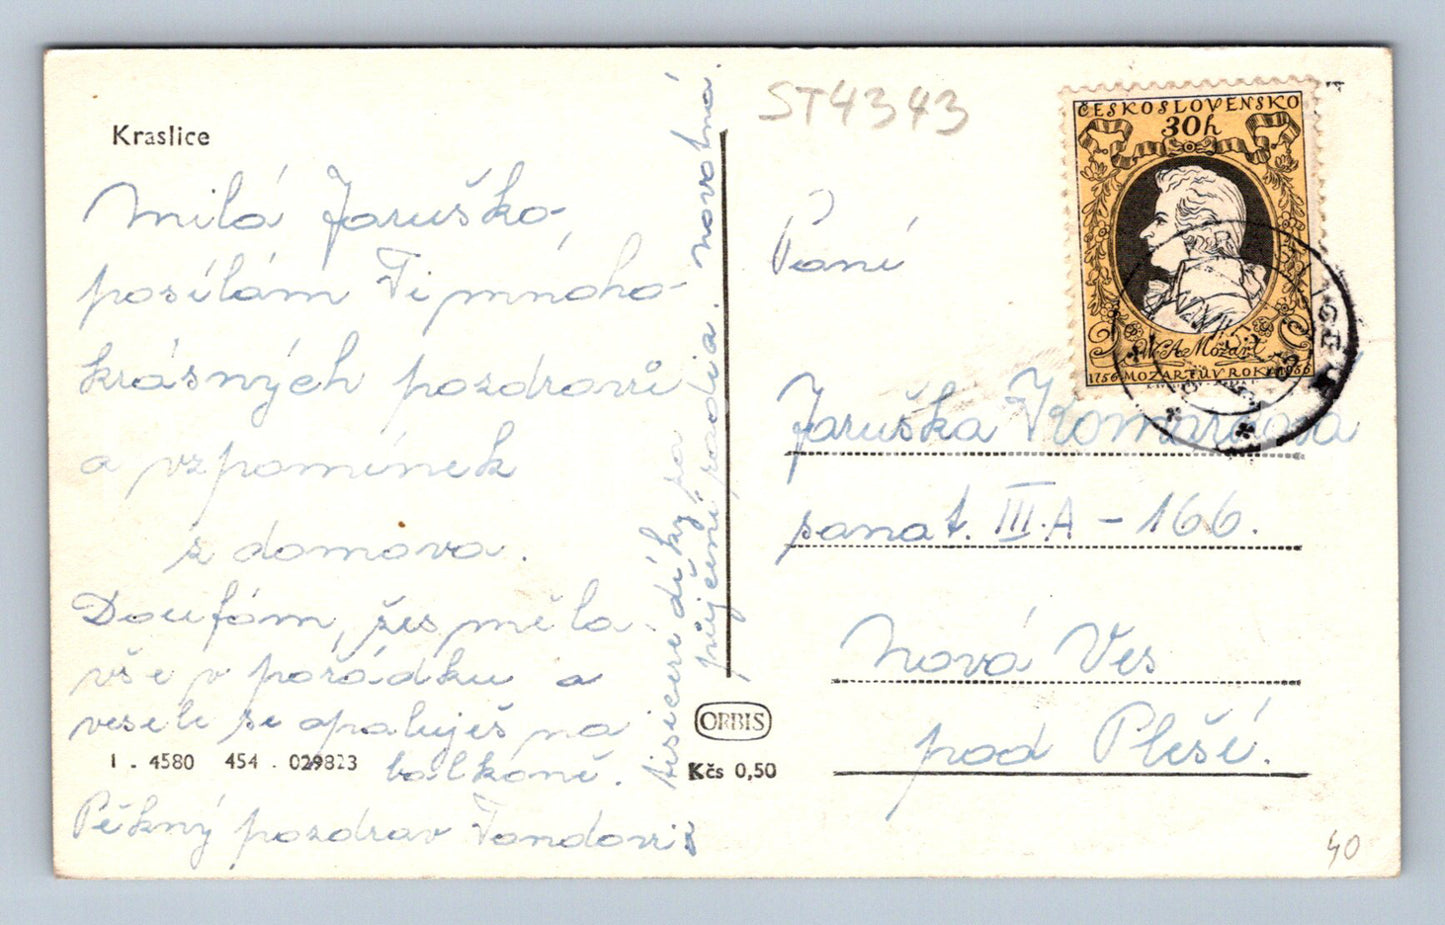 Kraslice
Milá Jaruško,
posílám Ti mnoho
krásných pozdravů
a vzpomínek
z domova.
Doufám, žes měla
vše v pořádku a
vesele se opaluješ na
balkoně.
Pěkný pozdrav Tondovi
tisíceré díky za
půjčení radia. Novotná.
1 . 4580 454 . 029823
ORBIS
Kčs 0,50
ST4343
ČESKOSLOVENSKO
30h
W.A. Mozart
1756 MOZARTŮV ROK 1956
Paní
Jaruška
sanat. III.A - 166.
Nová Ves
pod Pleší.
40